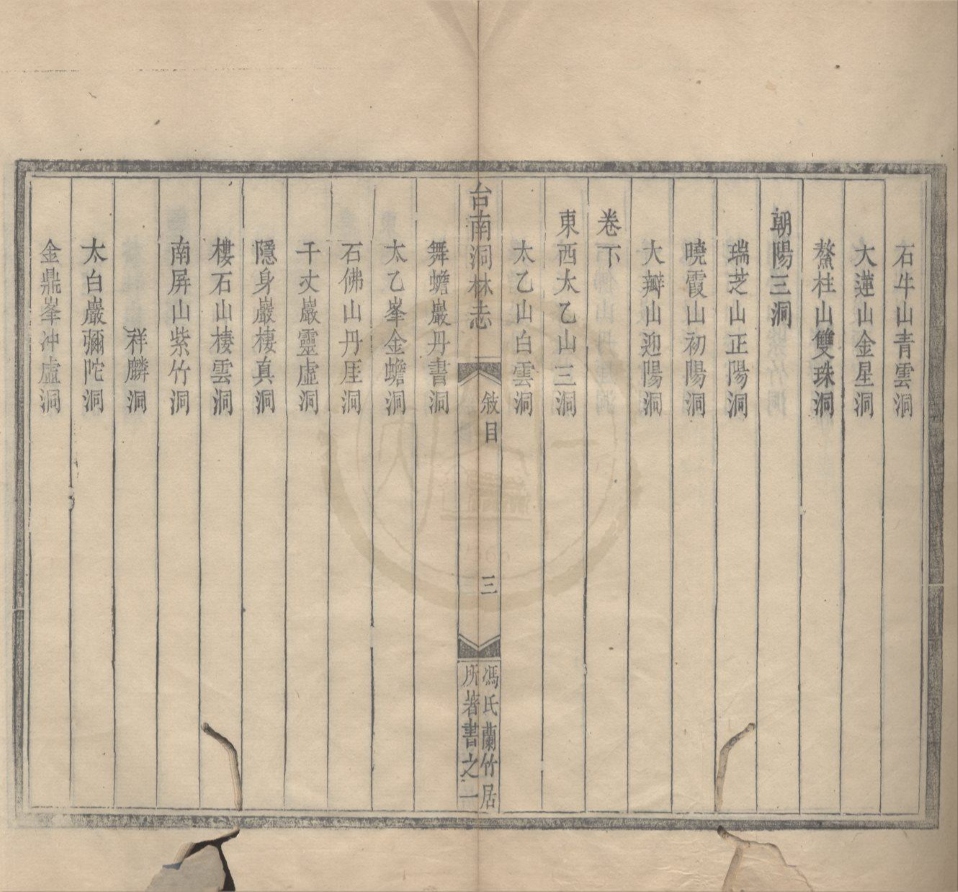 石牛山青雲洞
大蓮山金星洞
鰲柱山雙珠洞
朝陽三洞
瑞芝山正陽洞
曉霞山初陽洞
大瓣山迎陽洞
卷下
東西太乙山三洞
太乙山白雲洞
台南洞林志
敘目
三
馮氏蘭竹居
所著書之一
舞蟾巖丹書洞
太乙峯金蟾洞
石佛山丹厓洞
千丈巖靈虛洞
隱身巖棲真洞
樓石山棲雲洞
南屏山紫竹洞
祥麟洞
太白巖彌陀洞
金鼎峯沖虛洞